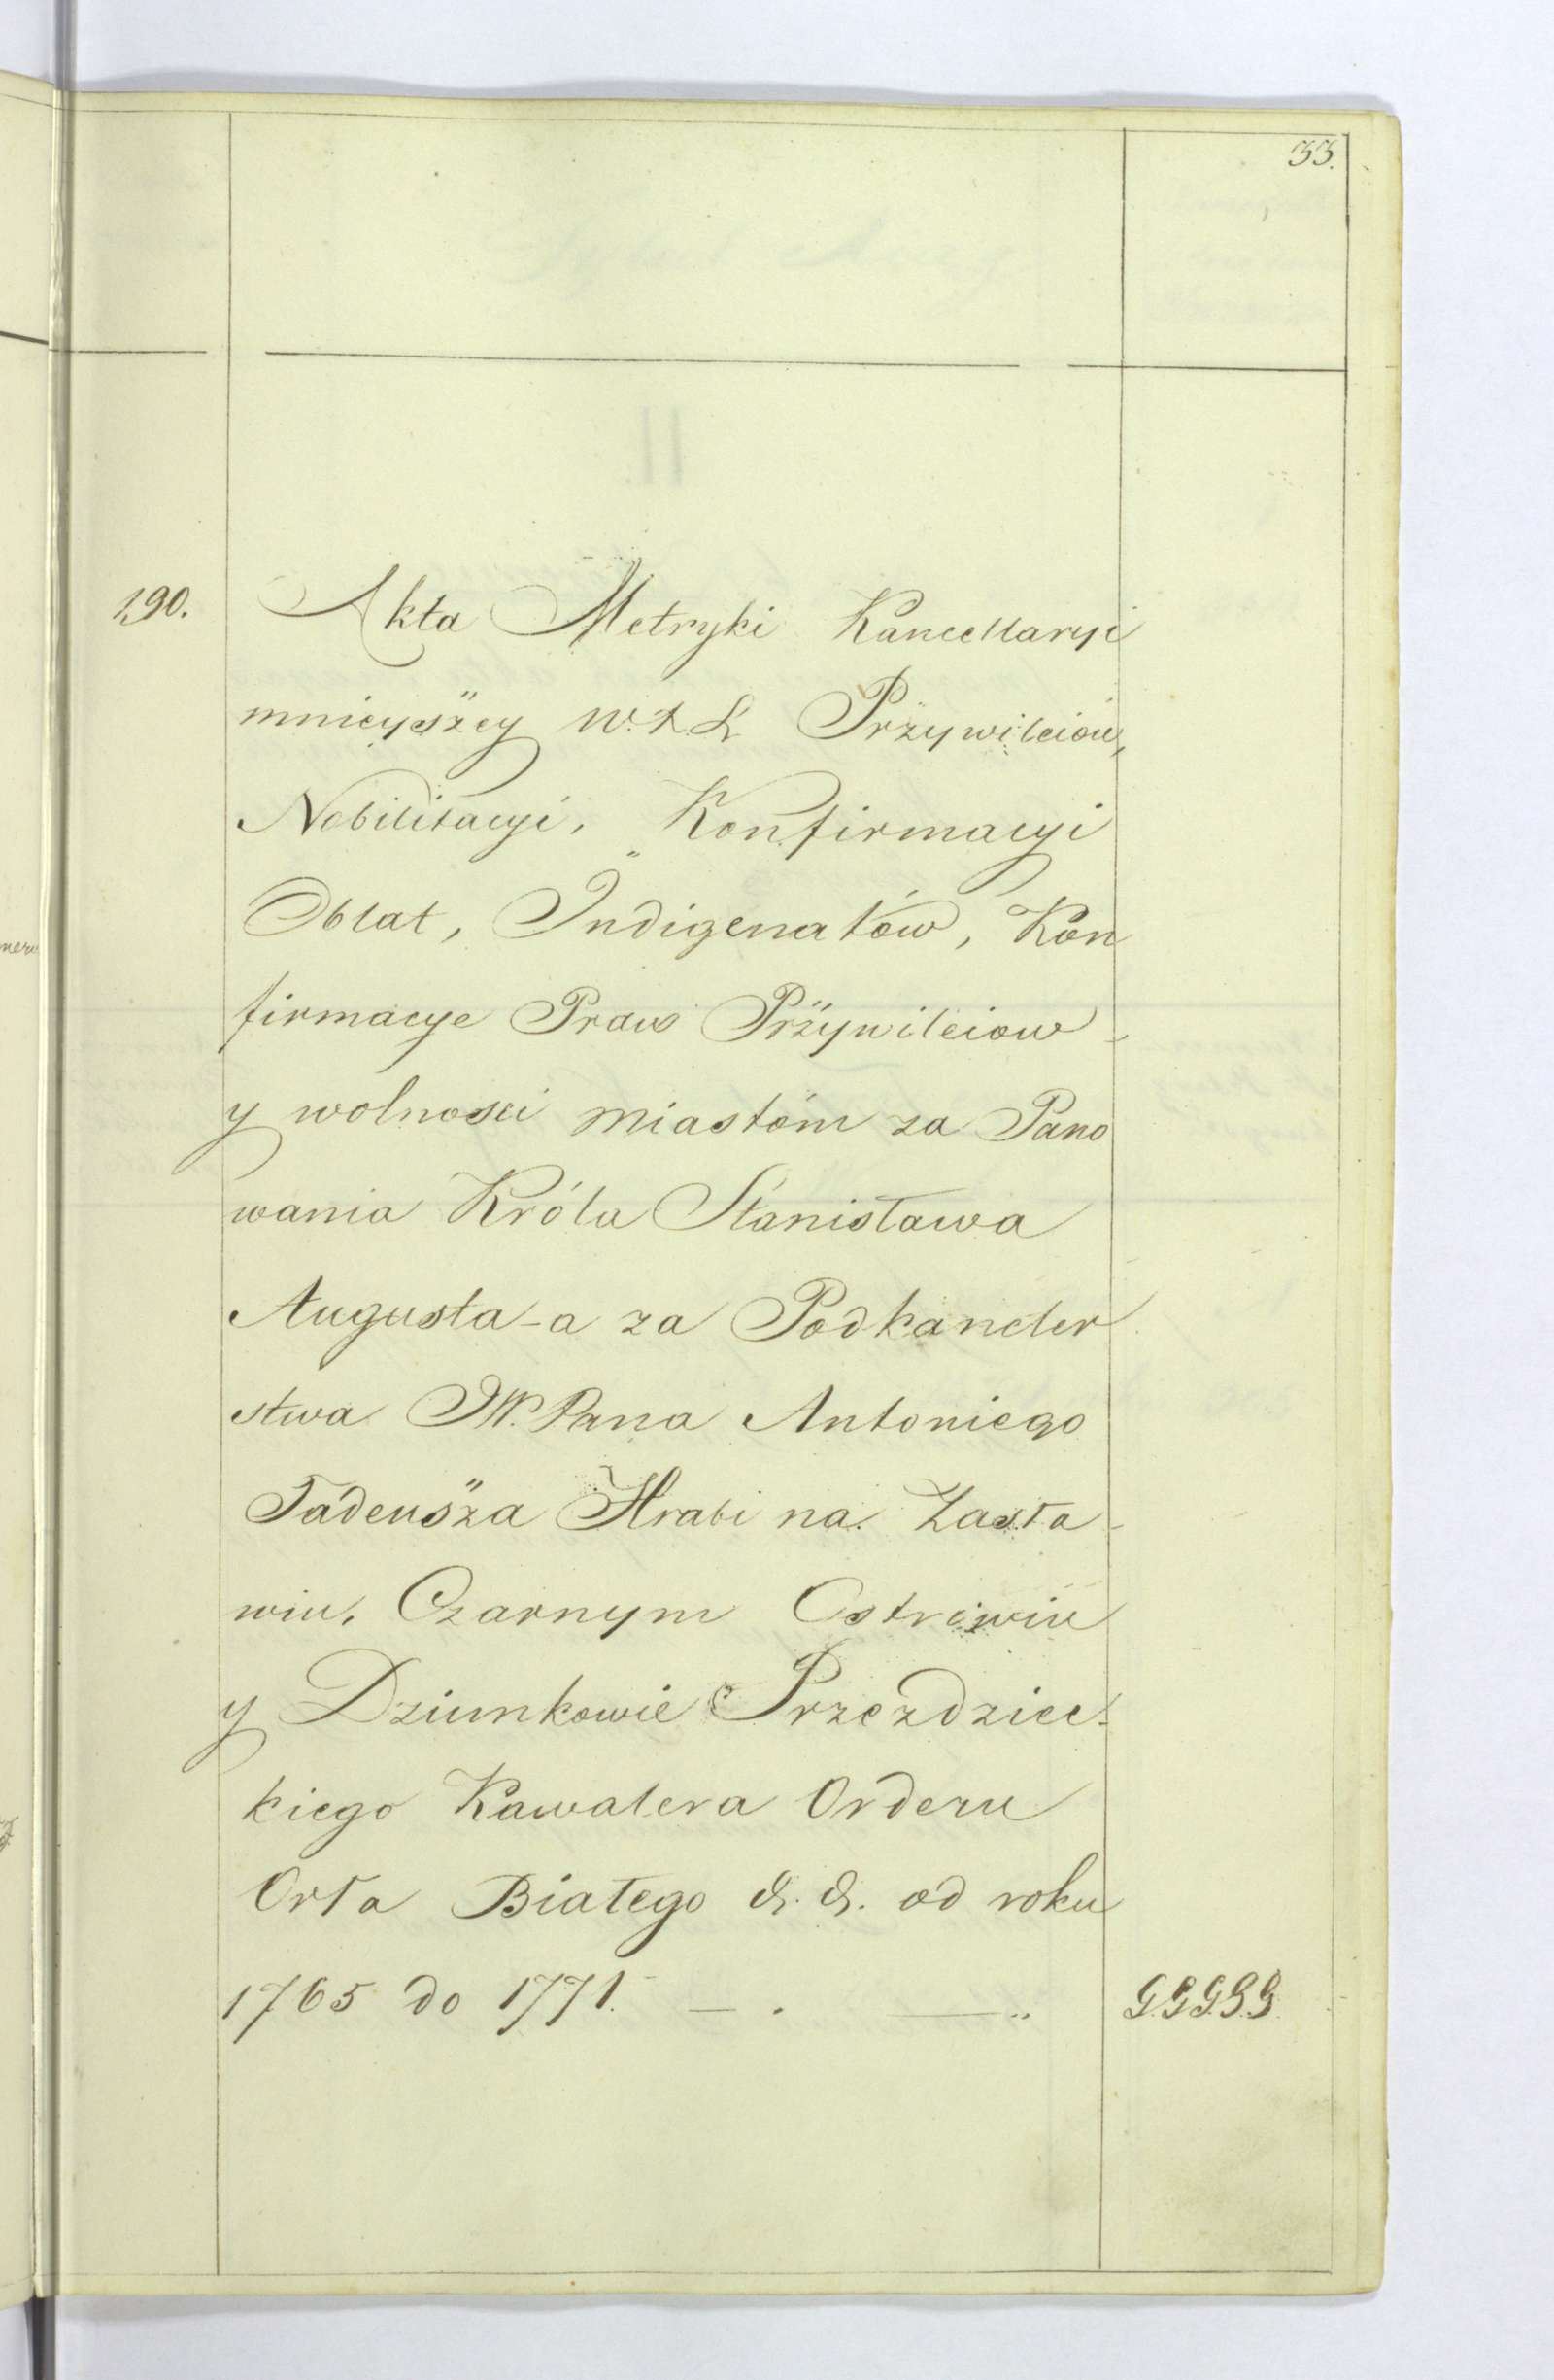 33.
190. Akta Metryki Kancellaryi
mnieyszey W. X. L. Przywileiów,
Nobilitacyi, Konfirmacyi
Oblat, Indigenatów, Kon
firmacye Praw Przywileiow -
y wolnosci miastóm za Pano
wania Króla Stanisława
Augusta - a za Podkancler
stwa JW. Pana Antoniego
Tadeusza Hrabi na Zasła -
wiu, Czarnym Ostrowiu
y Dziunkowie Przezdziec -
kiego Kawalera Orderu
Orła Białego &. &. od roku
1765 do 1771. — . —— .. GGGGG